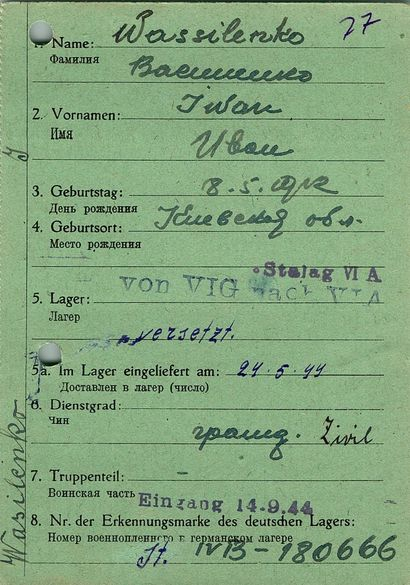 77
1. Name: Wassilenko
Фамилия Василенко
2. Vornamen: Iwan
Имя Иван
3. Geburtstag: 8.5.
День рождения
4. Geburtsort: Киевская обл.
Место рождения
Stalag VI A
von VIG nach VIA
5. Lager: versetzt.
Лагерь
5a. Im Lager eingeliefert am: 24.5.44
Доставлен в лагерь (число)
6. Dienstgrad:
Чин гражд. Zivil
7. Truppenteil: -
Воинская часть Eingang 14.9.44
8. Nr. der Erkennungsmarke des deutschen Lagers:
Номер военнопленного в германском лагере
St. IVB-180666
Wasilenko J